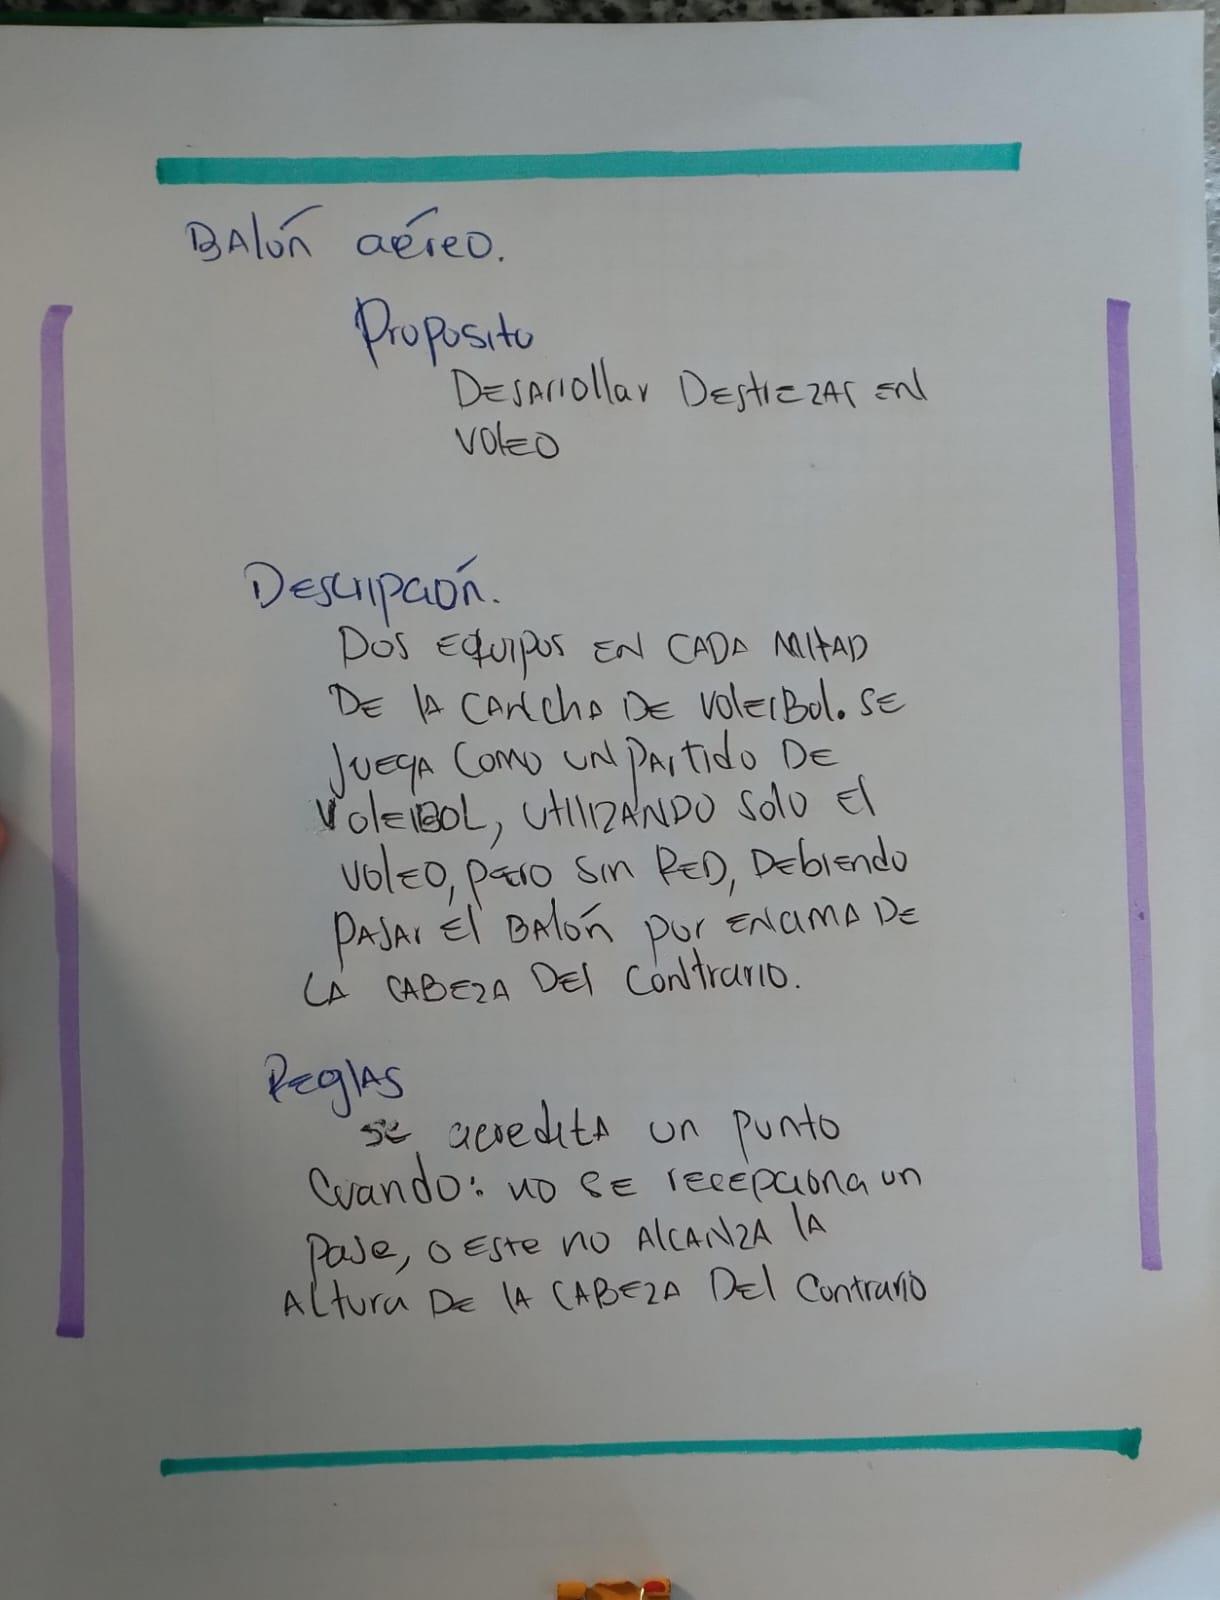 Balón aéreo.
Proposito
Desarrollar Destrezas en
voleo
Descripción.
Dos equipos en cada mitad
de la cancha de voleibol. se
juega como un partido de
voleibol, utilizando solo el
voleo, pero sin red, debiendo
pasar el balón por encima de
la cabeza del contrario.
Reglas
se acredita un punto
Cuando: no se recepciona un
pase, o este no alcanza la
altura de la cabeza del contrario